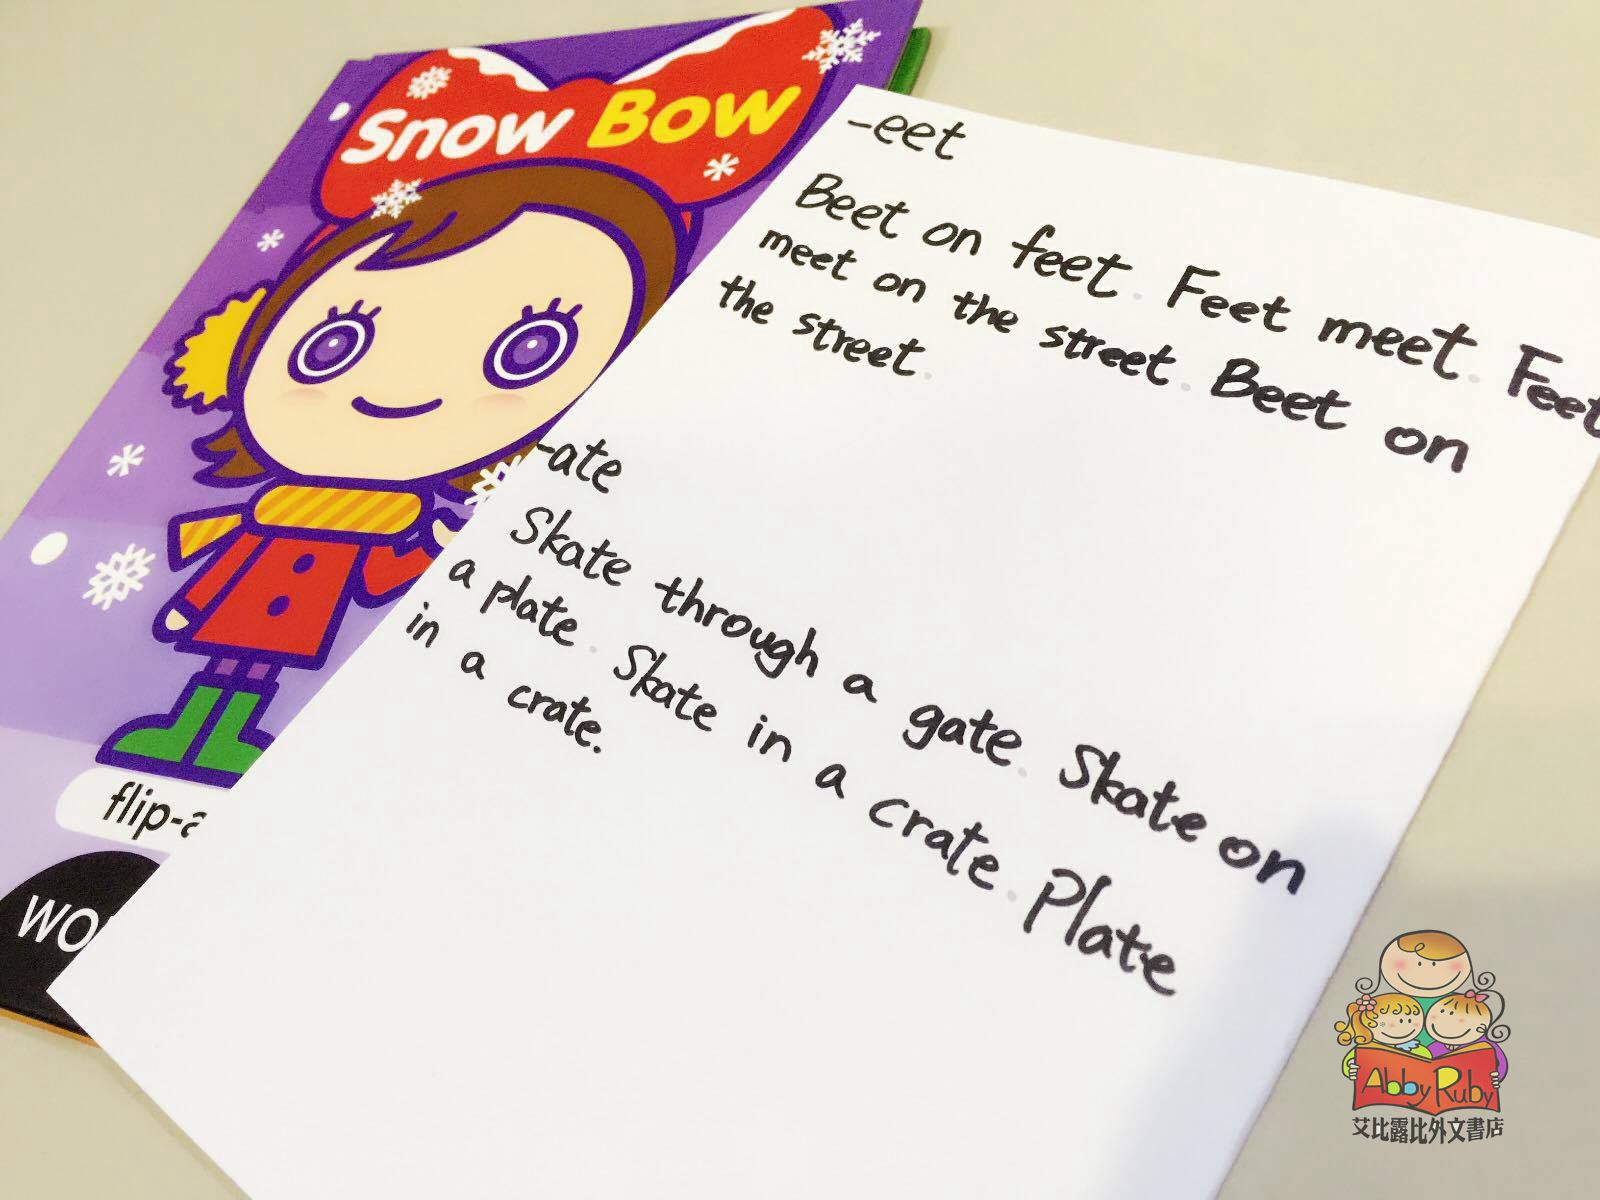 Snow Bow
flip-a
WO
-eet
Beet on feet. Feet meet. Feet
meet on the street. Beet on
the street.
-ate
Skate through a gate. Skate on
a plate. Skate in a crate. Plate
in a crate.
Abby Ruby
艾比露比外文書店